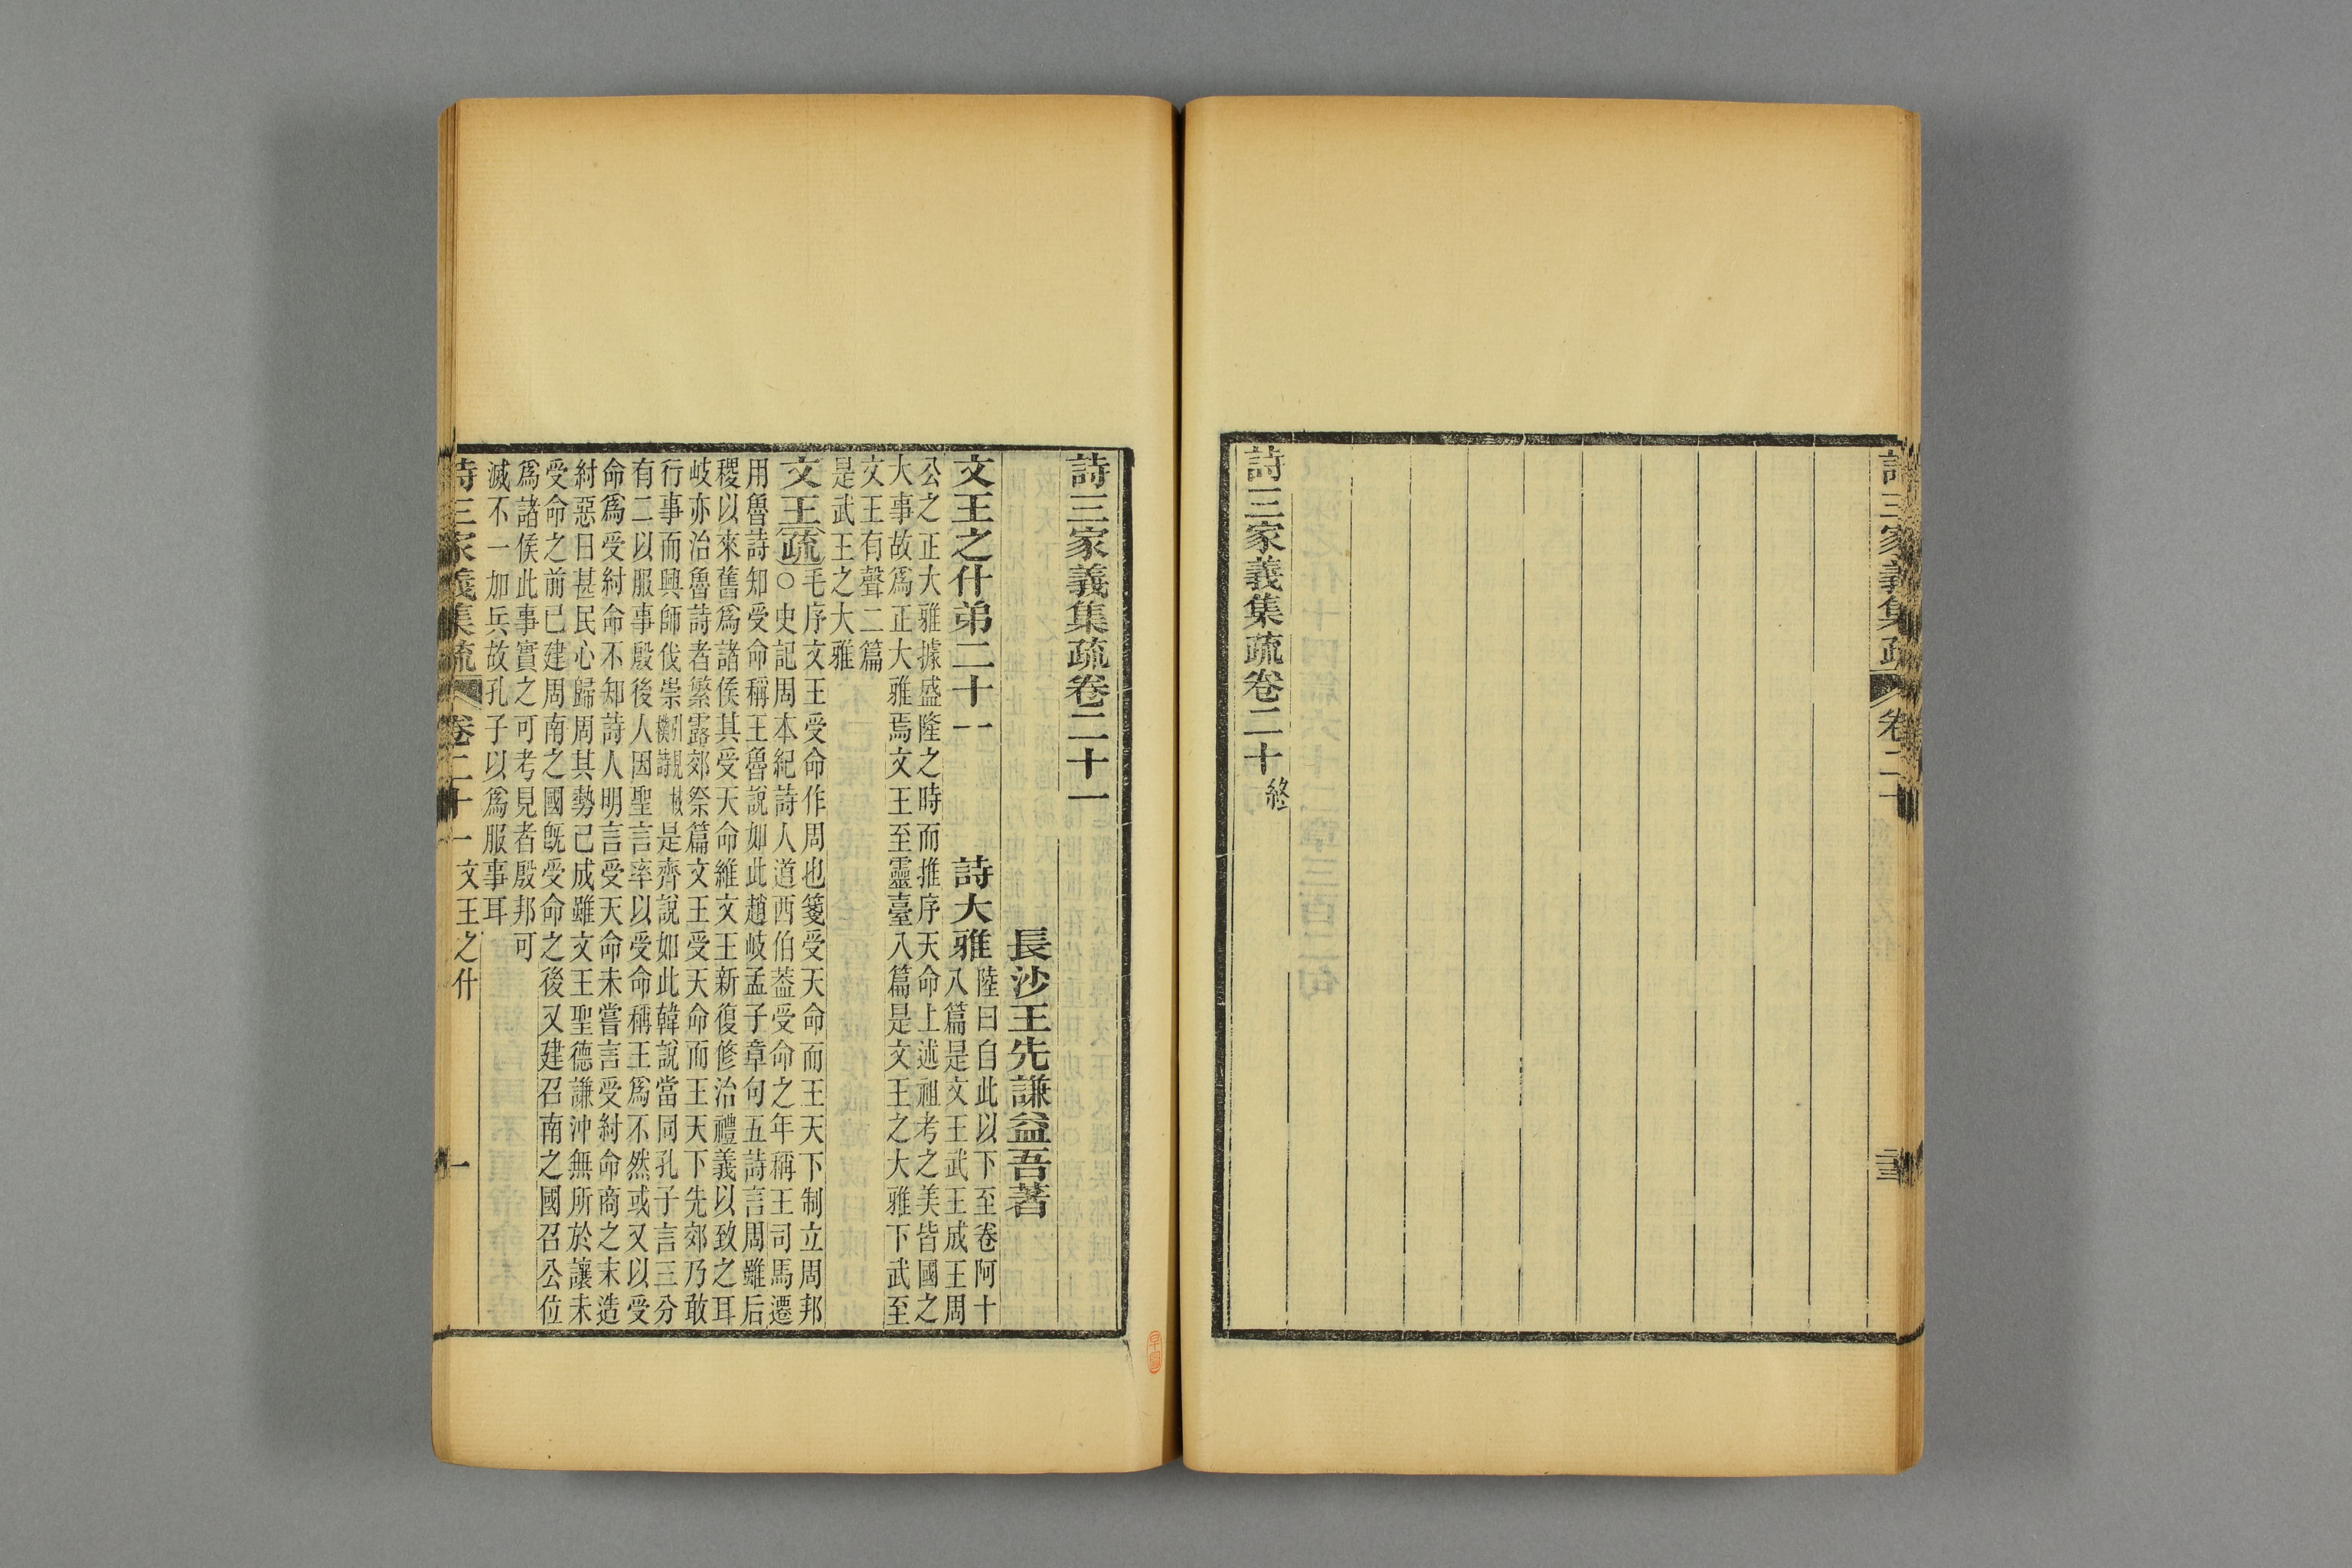 詩三家義集疏 卷二十
詩三家義集疏卷二十 終
詩三家義集疏卷二十一
長沙王先謙益吾著
文王之什弟二十一 詩大雅 陸曰自此以下至卷阿十
八篇是文王武王成王周
公之正大雅據盛隆之時而推序天命上述祖考之美皆國之
大事故爲正大雅焉文王至靈臺八篇是文王之大雅下武至
文王有聲二篇
是武王之大雅
文王疏 毛序文王受命作周也箋受天命而王天下制立周邦
○史記周本紀詩人道西伯葢受命之年稱王司馬遷
用魯詩知受命稱王魯說如此趙岐孟子章句五詩言周雖后
稷以來舊爲諸侯其受天命維文王新復修治禮義以致之耳
岐亦治魯詩者繁露郊祭篇文王受天命而王天下先郊乃敢
行事而興師伐崇引見棫樸詩是齊說如此韓說當同孔子言三分
有二以服事殷後人因聖言率以受命稱王爲不然或又以受
命爲受紂命不知詩人明言受天命未嘗言受紂命商之末造
紂惡日甚民心歸周其勢已成雖文王聖德謙沖無所於讓未
受命之前已建周南之國旣受命之後又建召南之國召公位
爲諸侯此事實之可考見者殷邦可
滅不一加兵故孔子以爲服事耳
詩三家義集疏 卷二十一 文王之什 一